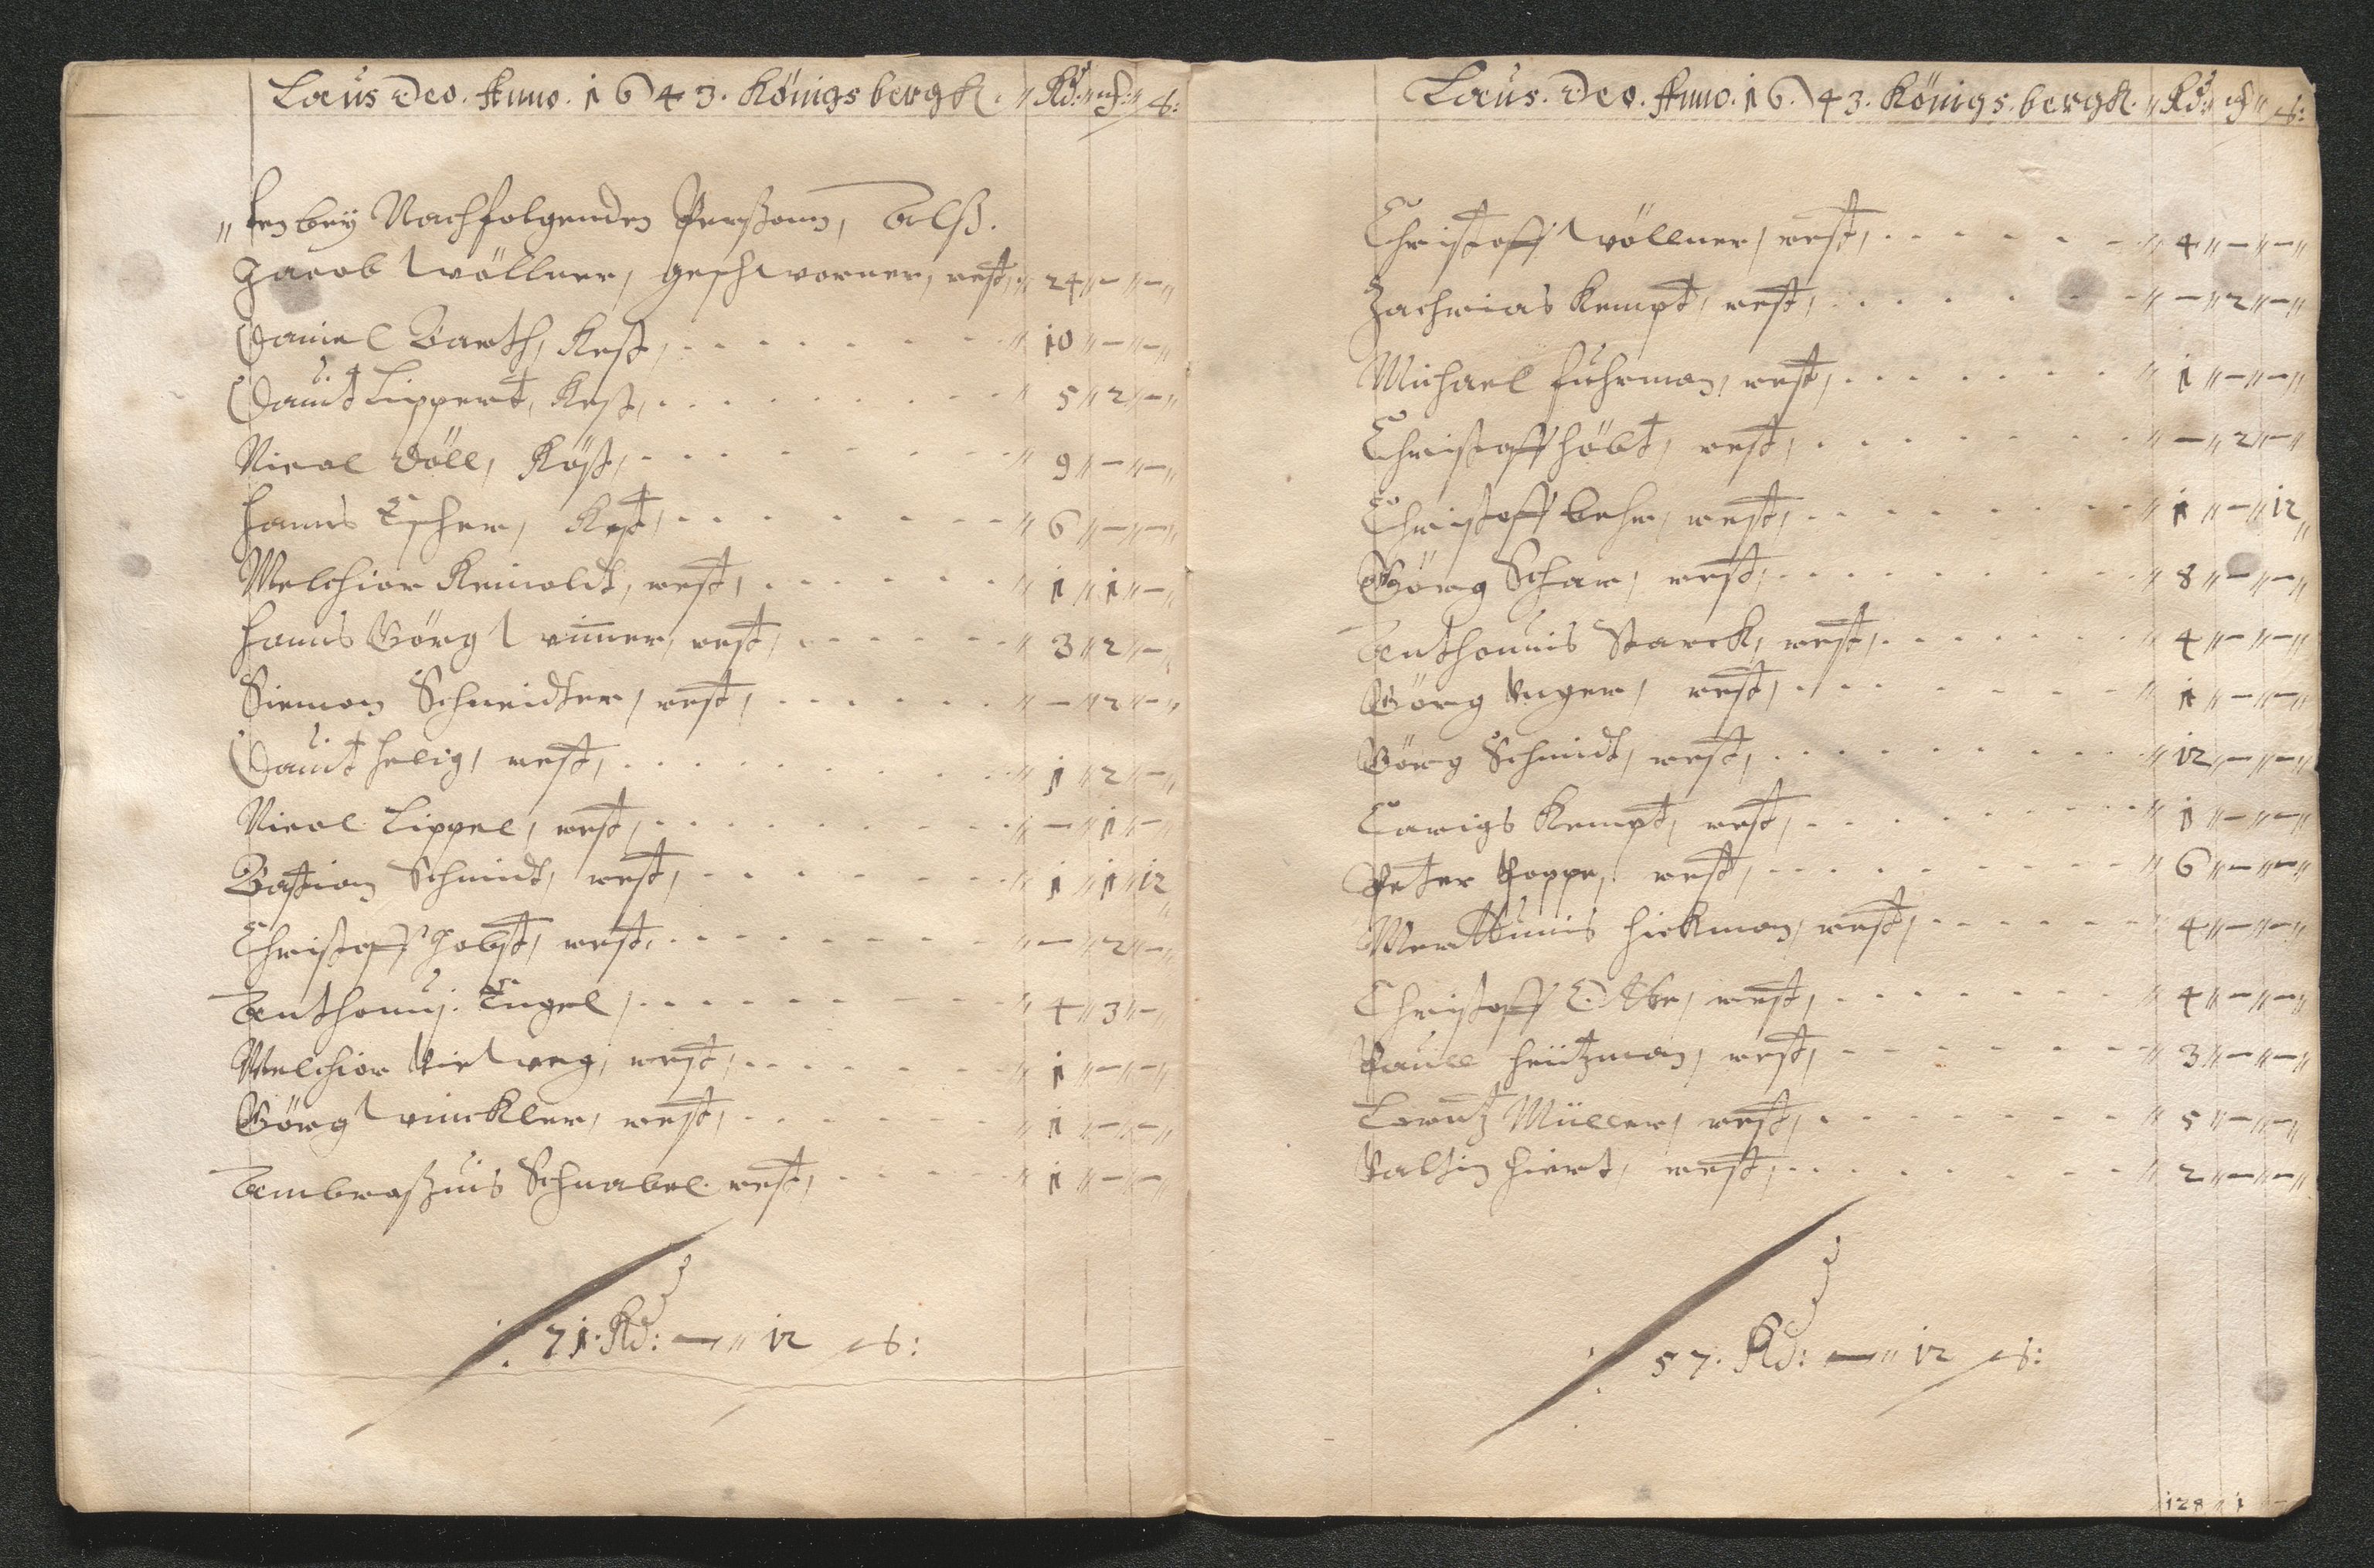 Laus Deo. Anno. 1643. Königsbergk. " Rd: " ꝑ: " ß:
" sen bey Nachfolgenden Perßonn, Alß.
Jacob Wöllner, geschworner, rest, " 24 " — " — "
Daniel Barth, Rest, - - - - " 10 " — " — "
Dauit Lippert, Rest, - - - - " 5 " 2 " — "
Nicol Döll, Röst, - - - - " 9 " — " — "
Hanns Escher, Rest, - - - - " 6 " — " — "
Melchior Reinoldt, rest, - - - - " 1 " 1 " — "
Hanns Görg Wimer, rest, - - - - " 3 " 2 " — "
Siemon Schneidter, rest, - - - - " — " 2 " — "
Dauit Helig, rest, - - - - " 1 " 2 " — "
Nicol Lippel, rest, - - - - " — " 1 " — "
Bastian Schmidt, rest, - - - - " 1 " 1 " 12 "
Christoff Jobst, rest, - - - - " — " 2 " — "
Anthonuj. Engel, - - - - " 4 " 3 " — "
Melchior Vieweg, rest, - - - - " 1 " — " — "
Görg Winckler, rest, - - - - " 1 " — " — "
Ambroßius Schnabel rest, - - - - " 1 " — " — "
71. Rd: — " 12 ß:
Laus. Deo. Anno. 1643. Königs.bergk. " Rd: " ꝑ " ß:
Christoff Wöllner, rest, - - - - " 4 " — " — "
Zachrias Kempt, rest, - - - - " — " 2 " — "
Michael Fuhrman, rest, - - - - " 1 " — " — "
Christoff Höbt, rest, - - - - " — " 2 " — "
Christoff Behr, rest, - - - - " 1 " — " 12 "
Görg Schar, rest, - - - - " 8 " — " — "
Anthonius Starck, rest, - - - - " 4 " — " — "
Görg Unger, rest, - - - - " 1 " — " — "
Görg Schmidt, rest, - - - - " 12 " — " — "
Carigs Kempt, rest, - - - - " 1 " — " — "
Peter Poppe, rest, - - - - " 6 " — " — "
Hickman, rest, - - - - " 4 " — " — "
Christoff rest, - - - - " 4 " — " — "
Paull Heützman, rest, - - - - " 3 " — " — "
Lorentz Müller, rest, - - - - " 5 " — " — "
Valtin Hiert, rest, - - - - " 2 " — " — "
57. Rd: — " 12 ß:
128 " 1 —